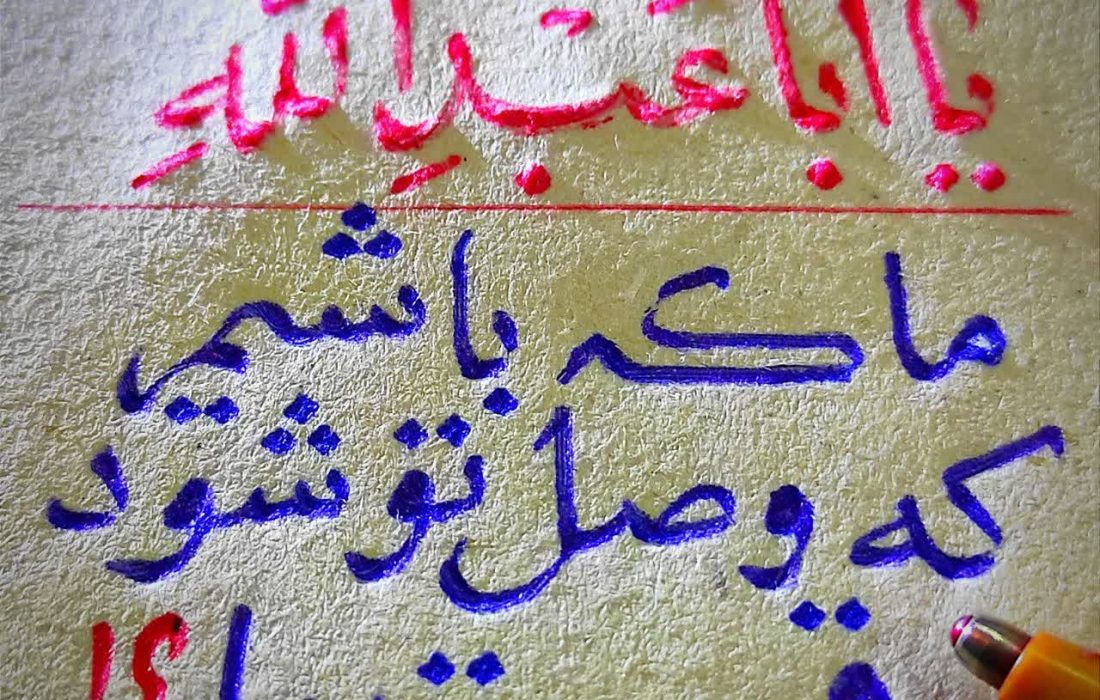 یا اباعَبْدِاللهِ
ما که باشیم
که وصل تو شود